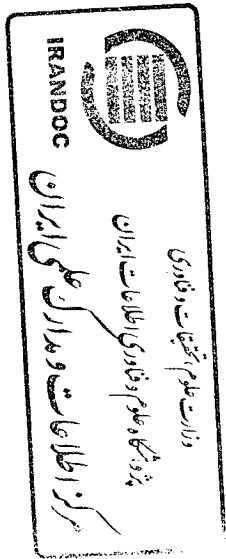 وزارت علوم تحقیقات و فناوری
پژوهشگاه علوم و فناوری اطلاعات ایران
مرکز اطلاعات و مدارک علمی ایران
IRANDOC